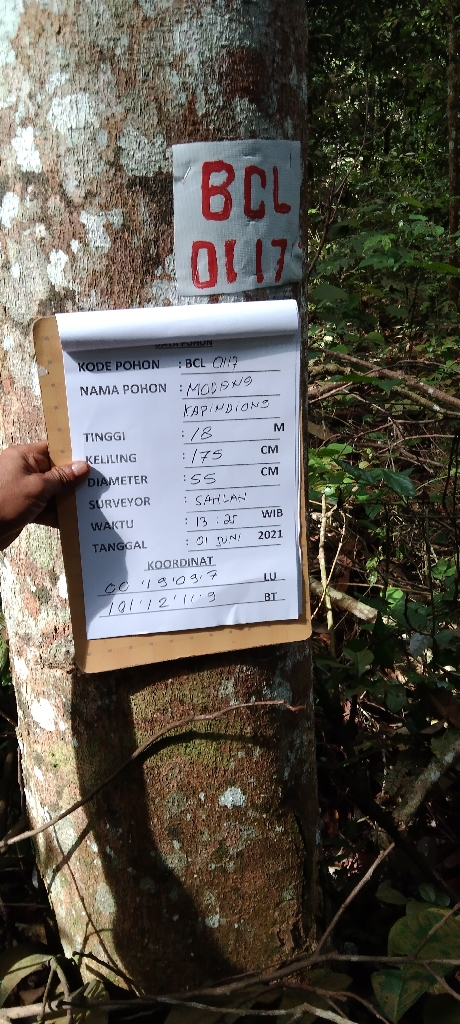 BCL
0117
DATA POHON
KODE POHON : BCL 0117
NAMA POHON : MODANG
KAPINDIONG
TINGGI : 18 M
KELILING : 175 CM
DIAMETER : 55 CM
SURVEYOR : SAHLAN
WAKTU : 13 : 25 WIB
TANGGAL : 01 JUNI 2021
KOORDINAT
00°19'09.7 LU
101°12'11.9 BT